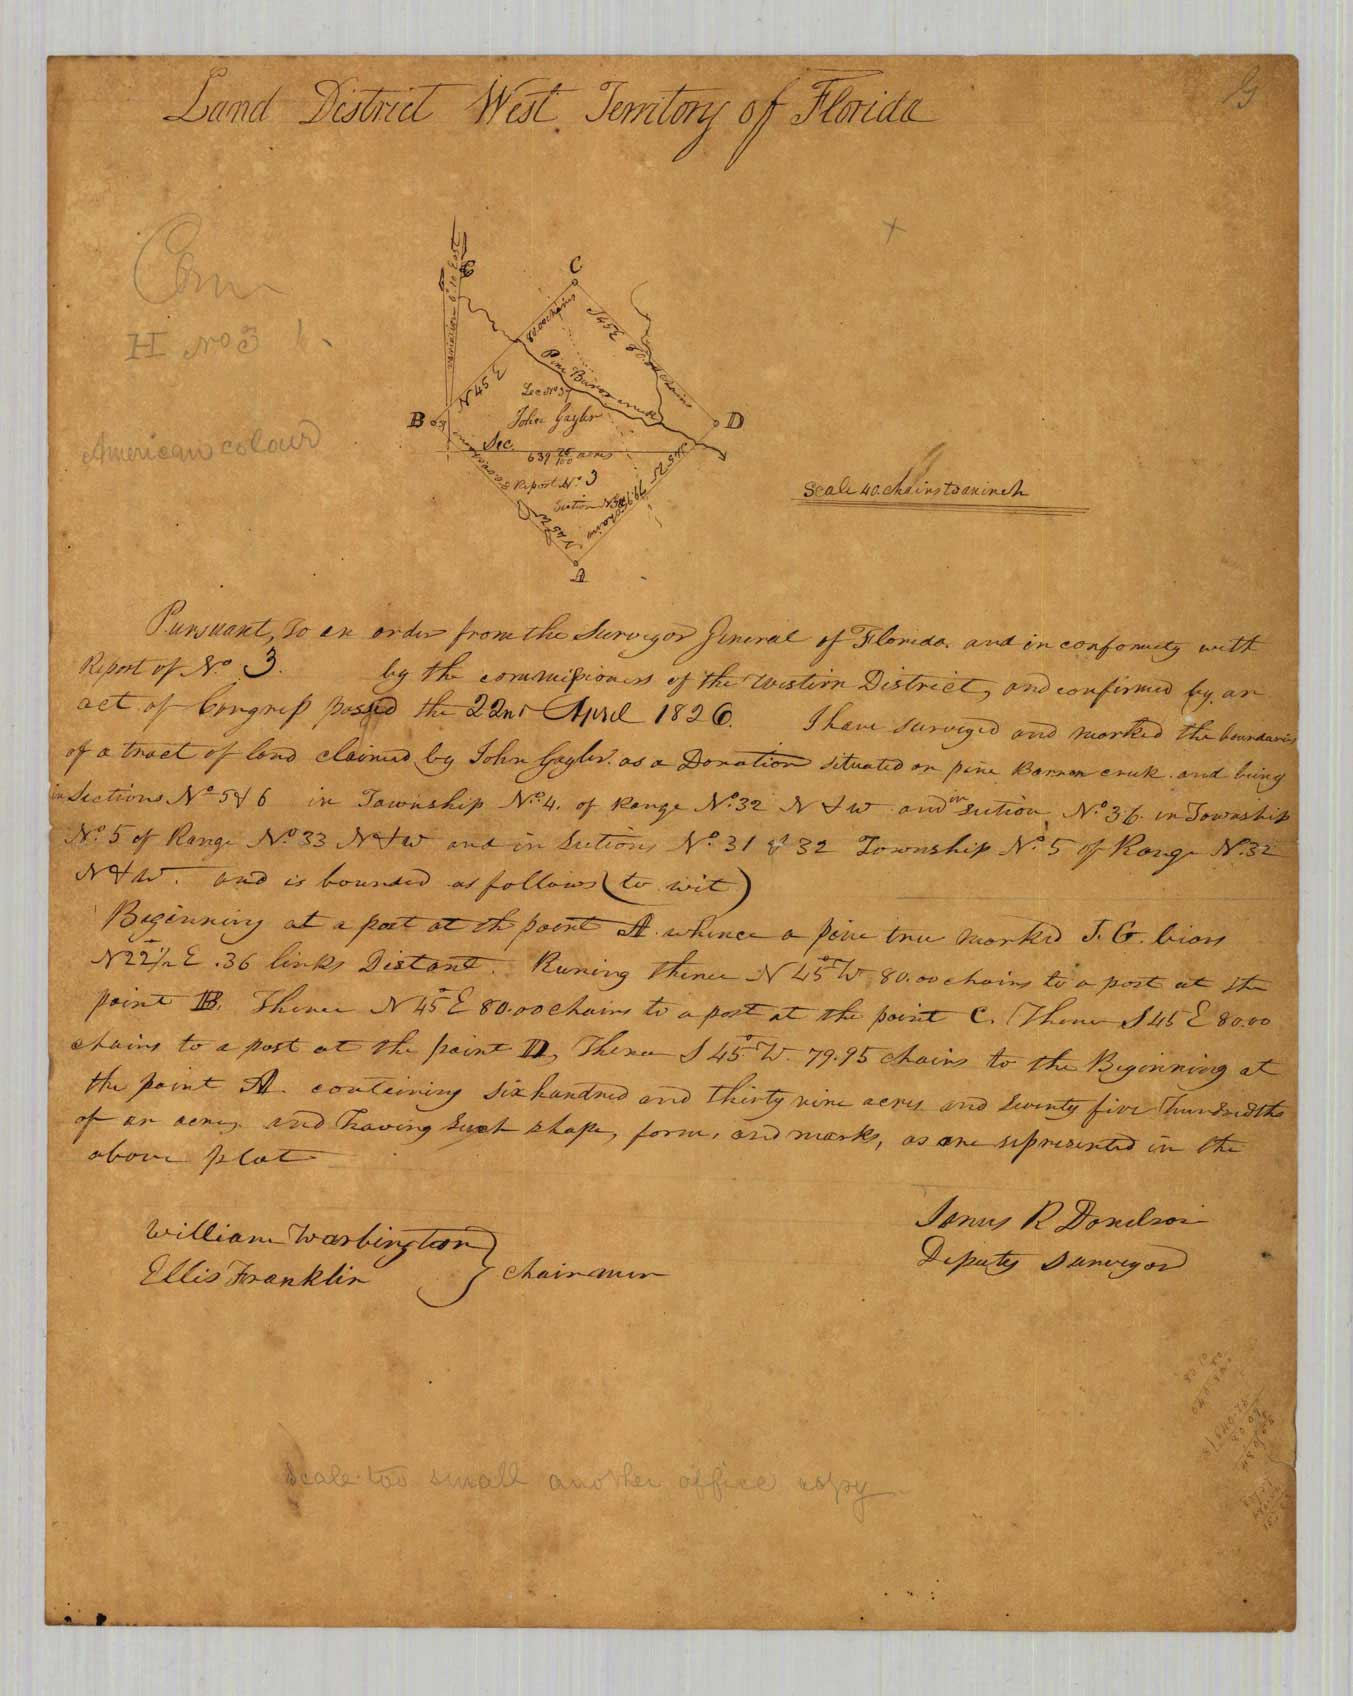 Land District West Territory of Florida
G
Com
H No 3
American colour
variation 6° 10 East
B
C
D
A
N 45 E
80.00 chains
S 45 E 80.00 chains
Pine Barren creek
Sec No 37
John Gaylor
Sec.
639 75/100 acres
Report No. 3
Section No 38
80.00 chains
N 45 W
S 45 W 79.95 chains
Scale 40. chains to an inch
Pursuant, to an order from the Surveyor General of Florida. and in conformity with
Report of No. 3. by the commissioners of the Western District, and confirmed by an
act of Congress passed the 22nd April 1826. I have surveyed and marked the boundaries
of a tract of land claimed by John Gaylor. as a Donation situated on pine Barren creek. and being
in Sections No 5 & 6 in Township No. 4. of Range No. 32 N & W and in section No. 36. in Township
No. 5 of Range No. 33 N & W and in Sections No. 31 & 32 Township No. 5 of Range No. 32
N & W. and is bounded as follows (to wit)
Beginning at a post at th point A. whence a pine tree marked J. G. bears
N 22 1/2 E .36 links Distant. Runing thence N 45° W 80.00 chains to a post at the
point B. Thence N 45° E 80.00 chains to a post at the point C. Thence S 45 E 80.00
chains to a post at the point D, Thence S 45° W. 79.95 chains to the Beginning at
the point A. containing six hundred and thirty nine acres and seventy five hundredths
of an acre, and having such shape, form, and marks, as are represented in the
above plat
William Warbington
Ellis Franklin } chainmen
James R Donelson
Deputy Surveyor
Scale too small another office copy